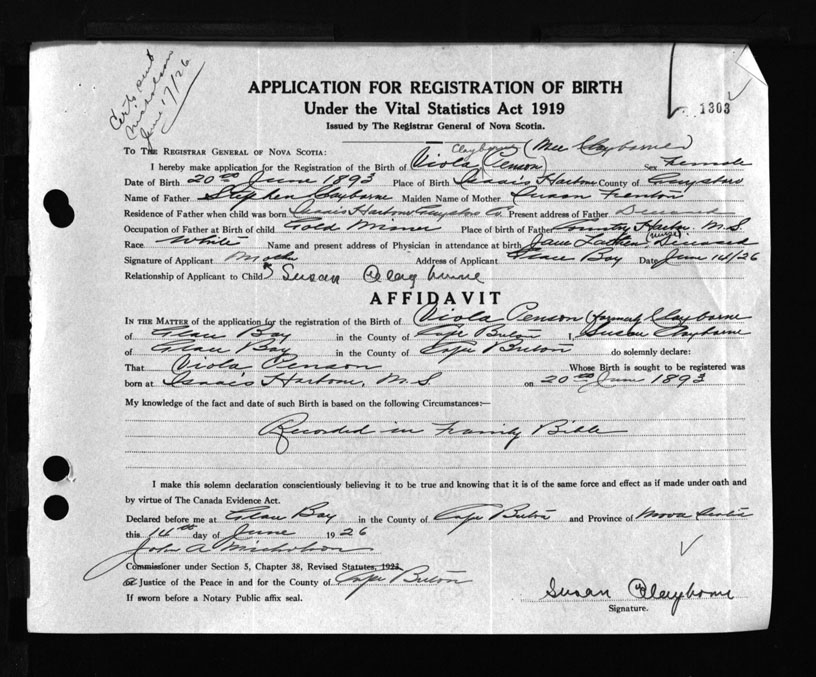 Certs sent
Nicholson
June 17/26
APPLICATION FOR REGISTRATION OF BIRTH
Under the Vital Statistics Act 1919
Issued by The Registrar General of Nova Scotia.
1303
To The Registrar General of Nova Scotia:
I hereby make application for the Registration of the Birth of Viola (Penson) (Nee Clayborne) Sex Female
Date of Birth 20th June 1893 Place of Birth Isaacs Harbour County of Guysboro
Name of Father Stephen Clayborne Maiden Name of Mother Susan Fenton
Residence of Father when child was born Isaacs Harbour Guysboro Co. Present address of Father Deceased
Occupation of Father at Birth of child Gold Miner Place of birth of Father Country Harbor N.S
Race White Name and present address of Physician in attendance at birth Jane (nurse) Deceased
Signature of Applicant Mother Address of Applicant Glace Bay Date June 14/26
Relationship of Applicant to Child Susan Claybourne
AFFIDAVIT
In the Matter of the application for the registration of the Birth of Viola Penson (formerly Clayborne
of Glace Bay in the County of Cape Breton I, Susan Clayborne
of Glace Bay in the County of Cape Breton do solemnly declare:
That Viola Penson Whose Birth is sought to be registered was
born at Isaacs Harbour, N.S on 20th June 1893
My knowledge of the fact and date of such Birth is based on the following Circumstances:—
Recorded in Family Bible
I make this solemn declaration conscientiously believing it to be true and knowing that it is of the same force and effect as if made under oath and
by virtue of The Canada Evidence Act.
Declared before me at Glace Bay in the County of Cape Breton and Province of Nova Scotia
this 14th day of June 1926
John A Nicholson
Commissioner under Section 5, Chapter 38, Revised Statutes, 1923
a Justice of the Peace in and for the County of Cape Breton
If sworn before a Notary Public affix seal.
Susan Clayborne
Signature.